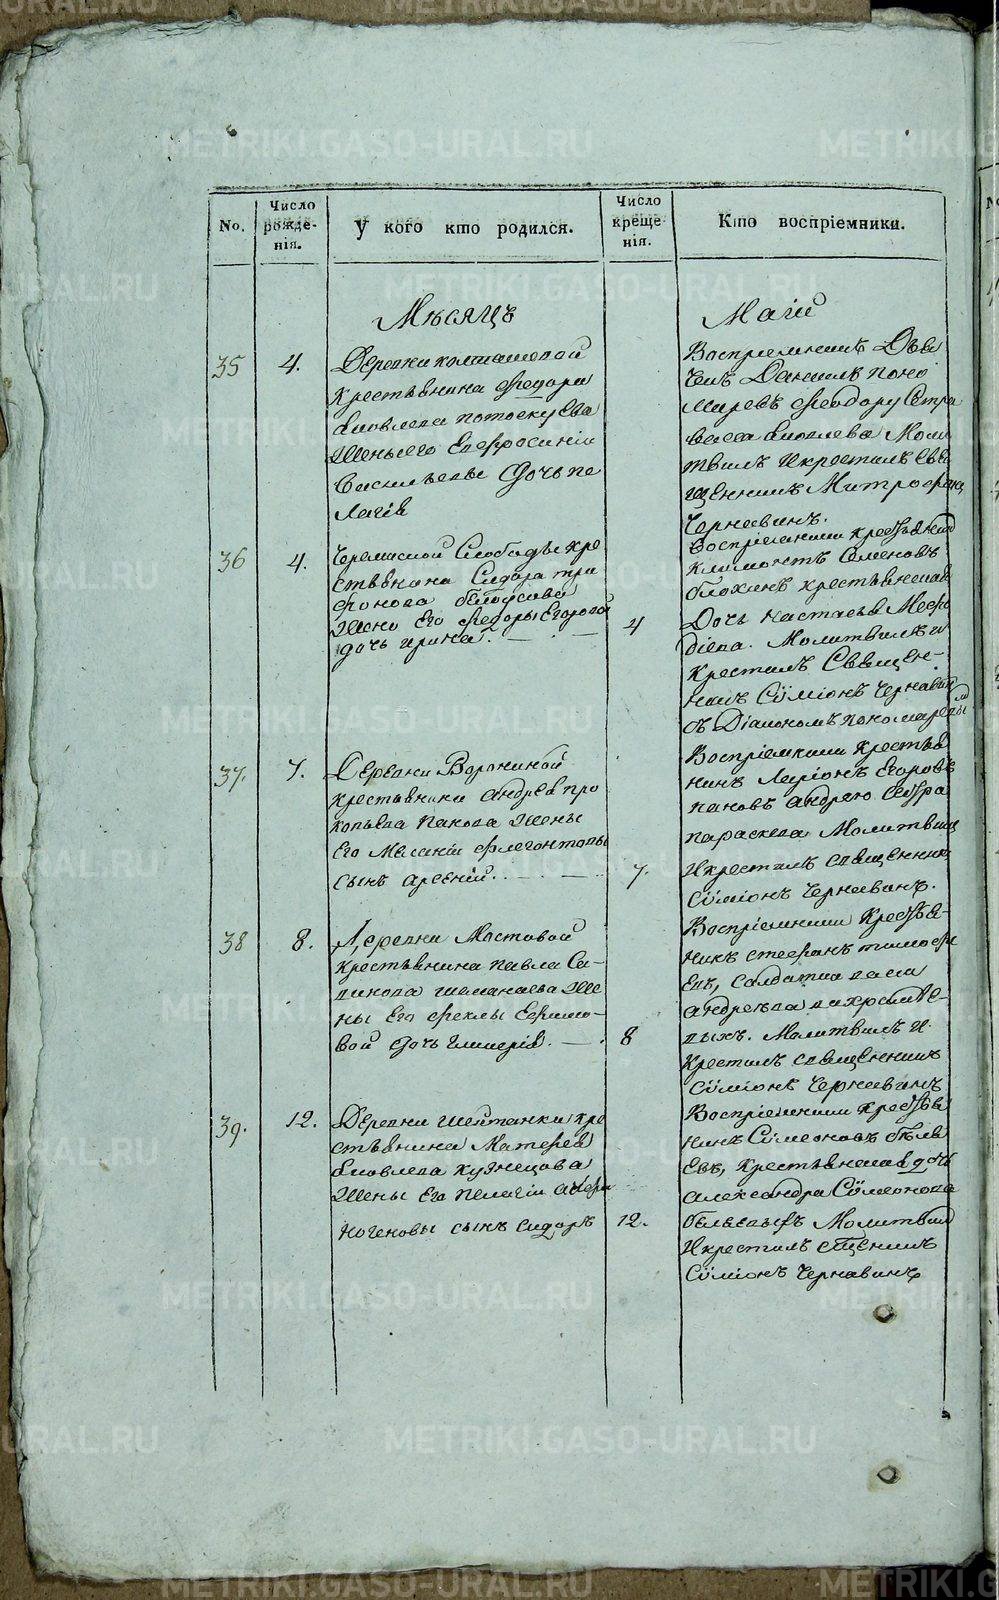 No.
Число рожде- нія.
У кого кто родился.
Число креще- нія.
Кто воспріемники.
Мѣсяцъ
Маій
35
4.
Деревни
Крестьянина Федора
Яковлева
Жены его Евфросиніи
Васильевы Дочь пе
лагія
Воспріемникъ Дьяч
Федору Сестра
Яковлева Моли
твилъ И крестилъ Свя
щенникъ Митрофанъ
Чернавинъ.
36
4.
Слободы кре
стьянина Сидора три
фонова
Жены Его Федоры Егоровой
дочь ирина.
4
Воспріемники
Семеновъ
блохинъ крестьянская
Дочь настасья Мефо
діева. Молитвилъ и
Крестилъ Священ-
никъ Сѵміонъ Чернавин
съ Діакономъ
37.
7.
Деревни Ворониной
крестьянина андрея про
копьева панова Жены
Его Меланіи флегонтовы
сынъ арсеній.
7.
Воспріемники Крестья
нинъ Ларіонъ Егоровъ
пановъ андрею Сестра
параскева Молитвилъ
И крестилъ священникъ
Сѵміонъ Чернавинъ.
38
8.
Деревни Мостовой
крестьянина павла Са-
винова Же
ны Его феклы Ефимо-
вой Дочь гликерія.
8
Воспріемники Крестья-
нинъ стефанъ тимофе
евъ,
андреева вахромѣе-
выхъ. Молитвилъ И
крестилъ священникъ
Сѵміонъ Чернавинъ
39.
12.
Деревни шейтанки кре
стьянина Матфея
Яковлева кузнецова
Жены Его пелагіи анфи
ногеновы сынъ Сидоръ
12.
Воспріемники Крестья
нинъ Сѵмеоновъ бѣля
евъ, крестьянская дочь
александра Сѵмеонова
бѣляевыхъ Молитвилъ
И крестилъ
Сѵміонъ Чернавинъ
METRIKI.GASO-URAL.RU